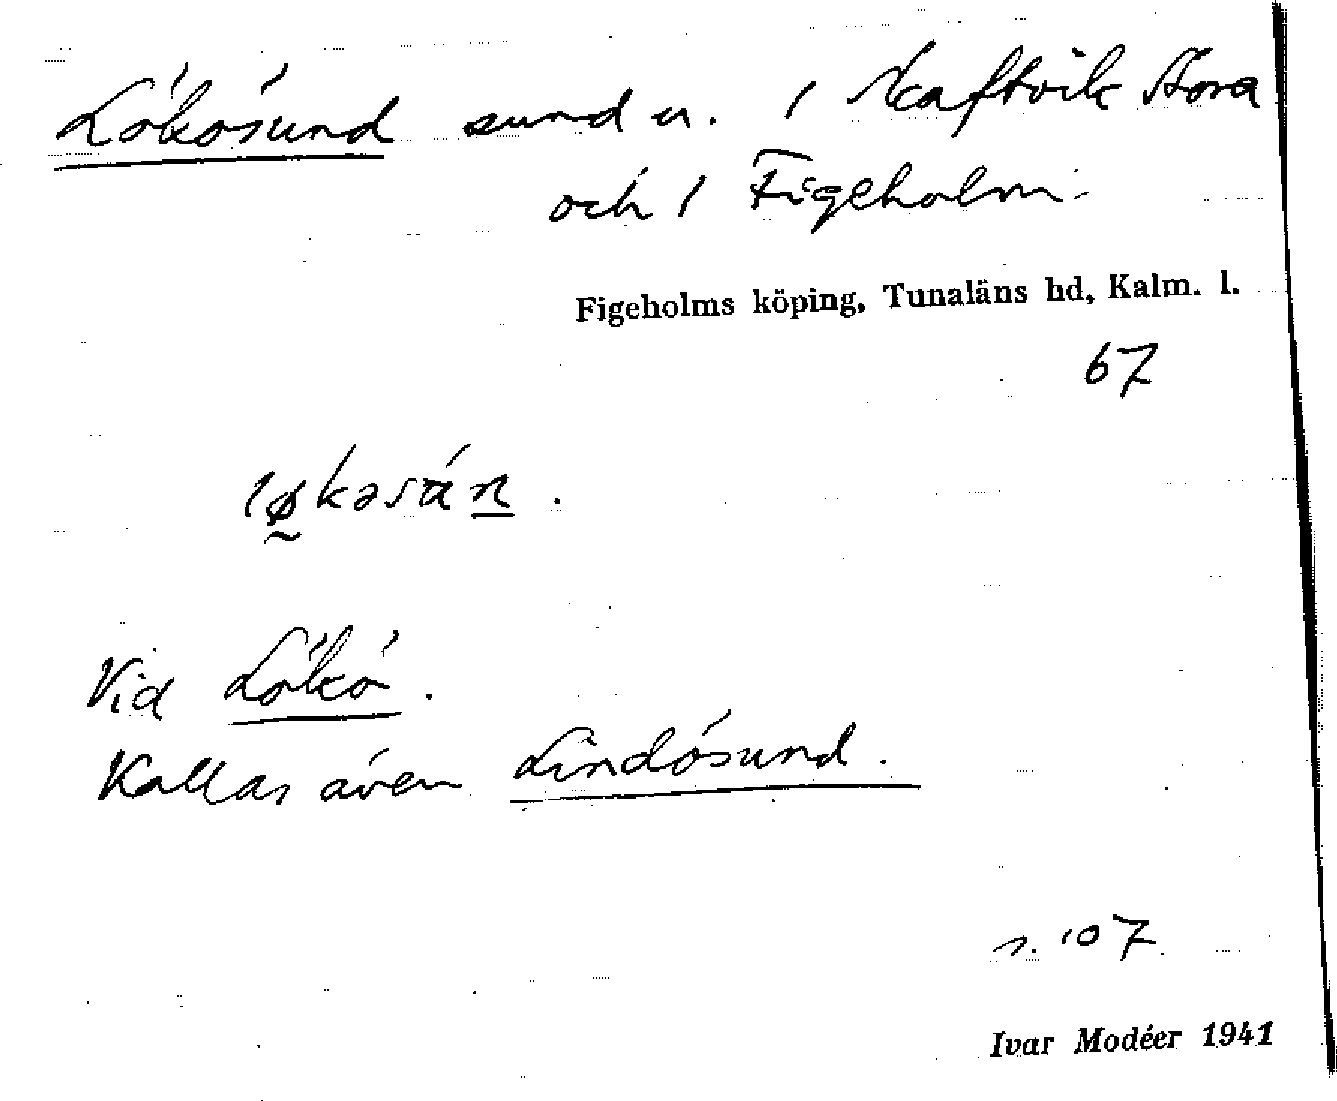 Lökösund sund u. / Skaftvik Stora
och / Figeholm.
Figeholms köping, Tunaläns hd, Kalm. l.
67
løkəsán.
Vid Lökö.
Kallas även Lindösund.
s. 107
Ivar Modéer 1941